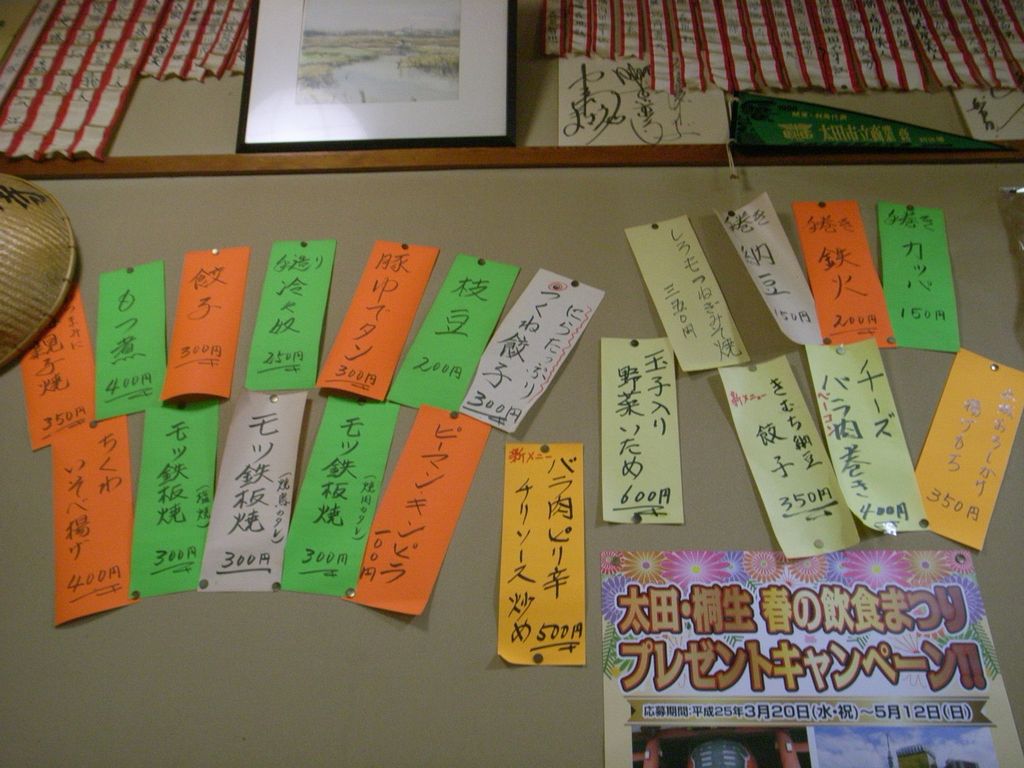 太田市立商業高
うまみに
親子焼
350円
もつ煮
400円
餃子
300円
手造り
冷奴
250円
豚ゆでタン
300円
枝豆
200円
にらたっぷり
つくね餃子
300円
しろもつねぎみそ焼
三五〇円
手巻き
納豆
150円
手巻き
鉄火
200円
手巻き
カッパ
150円
ちくわ
いそべ揚げ
400円
モツ鉄板焼
(塩焼)
300円
モツ鉄板焼
(焼鳥のタレ)
300円
モツ鉄板焼
(焼肉のタレ)
300円
ピーマンキンピラ
100円
新メニュー
バラ肉ピリ辛
チリソース炒め
500円
玉子入り
野菜いため
600円
新メニュー
きむち納豆
餃子
350円
チーズ
ベーコン
バラ肉巻き
400円
揚げもち
350円
太田・桐生 春の飲食まつり
プレゼントキャンペーン!!
応募期間:平成25年3月20日(水・祝)〜5月12日(日)